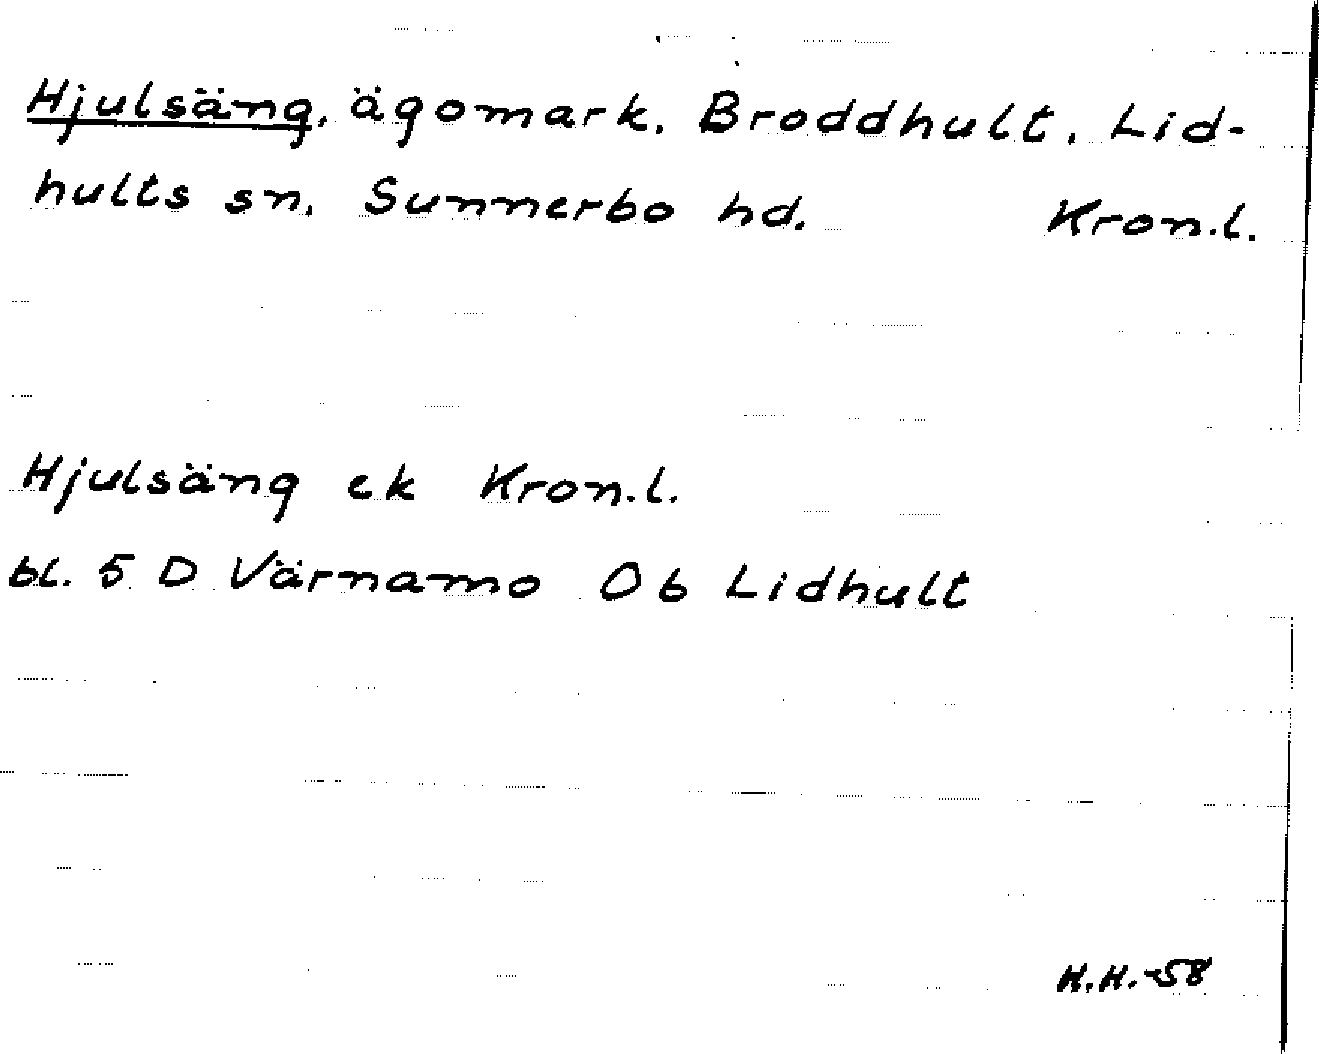 Hjulsäng, ägomark, Broddhult, Lid-
hults sn, Sunnerbo hd. Kron.l.
Hjulsäng ek Kron.l.
bl. 5 D Värnamo 0b Lidhult
H.H.-58